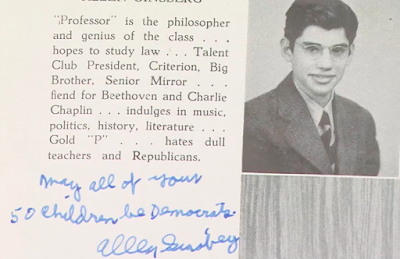 ALLEN GINSBERG
"Professor" is the philosopher
and genius of the class . . .
hopes to study law . . . Talent
Club President, Criterion, Big
Brother, Senior Mirror . . .
fiend for Beethoven and Charlie
Chaplin . . . indulges in music,
politics, history, literature . . .
Gold "P" . . . hates dull
teachers and Republicans.
May all of your
50 Children be Democrats.
Allen Ginsberg